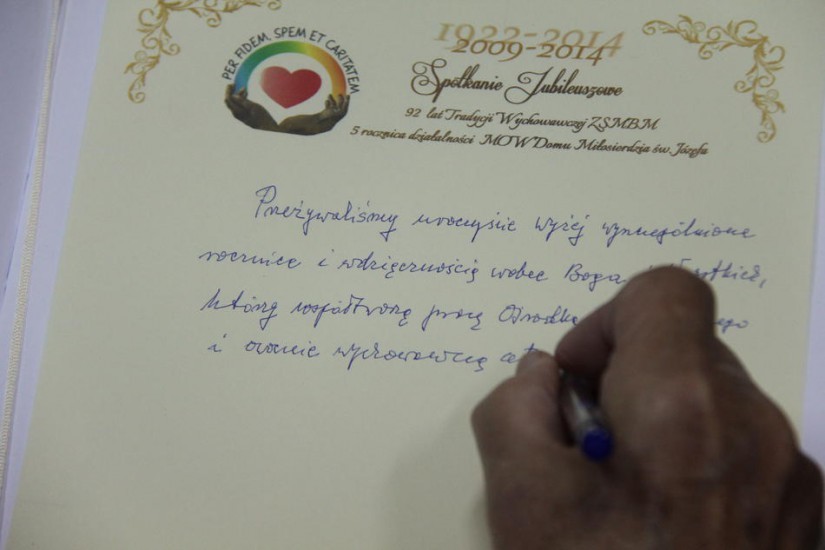 PER FIDEM, SPEM ET CARITATEM
1922-2014
2009-2014
Spotkanie Jubileuszowe
92 lat Tradycji Wychowawczej ZSMBM
5 rocznica działalności MOW Domu Miłosierdzia św. Józefa
Przeżywaliśmy uroczyście wyżej wyszczególnione
rocznice i wdzięcznością wobec Boga
którzy współtworzą pracę Ośrodka
i wychowawczą